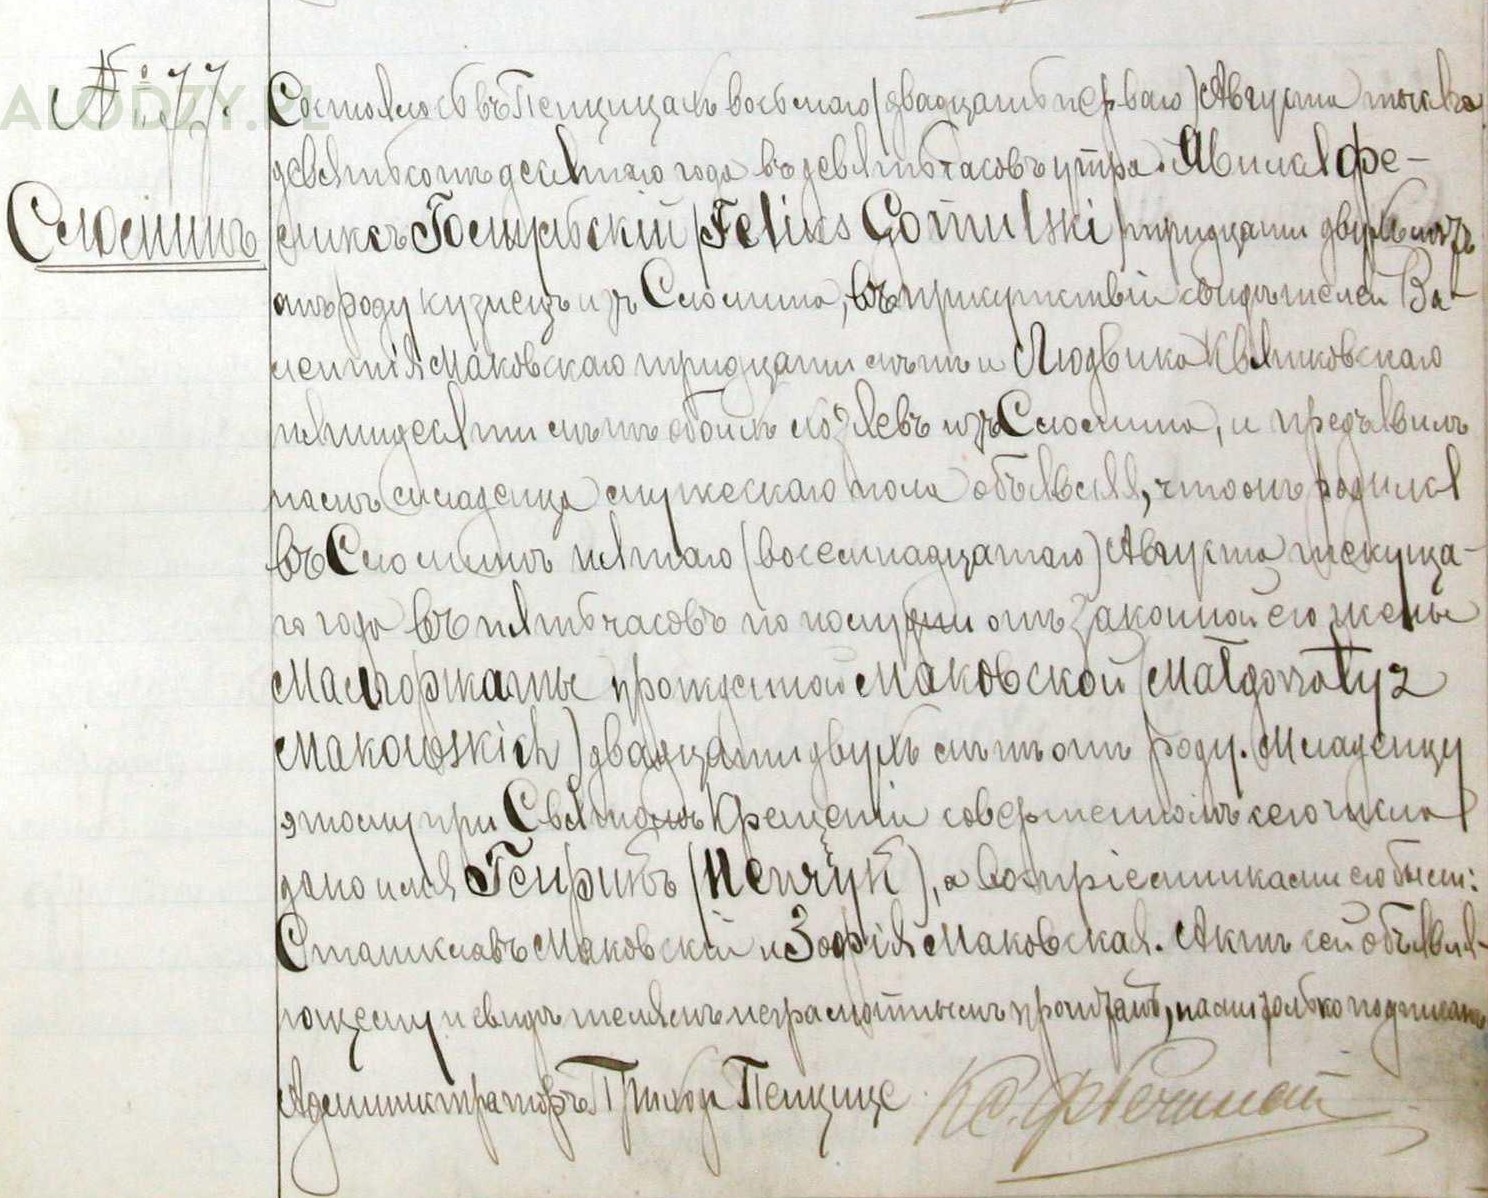 № 77.
Сломинъ
Состоялось въ Пенцицахъ восьмаго (двадцать перваго) Августа тысяча
девятьсотъ десятаго года въ девять часовъ утра. Явился Фе-
ликсъ Гомульскій (Feliks Gomulski) тридцати двухъ лѣтъ
отъ роду кузнецъ изъ Сломина, въ присутствіи свидѣтелей Ва-
лентія Маковскаго тридцати лѣтъ и Людвика Квятковскаго
пятидесяти лѣтъ обоихъ изъ Сломина, и предъявилъ
намъ младенца мужескаго пола объявляя, что онъ родился
въ Сломинѣ пятаго (восемнадцатаго) Августа текуща-
го года въ пять часовъ по полудни отъ законной его жены
Малгоржаты урожденной Маковской (Małgorzaty z
Makowskich) двадцати двухъ лѣтъ отъ роду. Младенцу
этому при Святомъ Крещеніи совершенномъ сего числа
дано имя Генрикъ (Henryk), а воспріемниками его были:
Станиславъ Маковскій и Зофія Маковская. Актъ сей объявля-
ющему и свидѣтелямъ неграмотнымъ прочтанъ, нами только подписанъ
Администраторъ Прихода Пенцице Кс.
ALODZY.PL